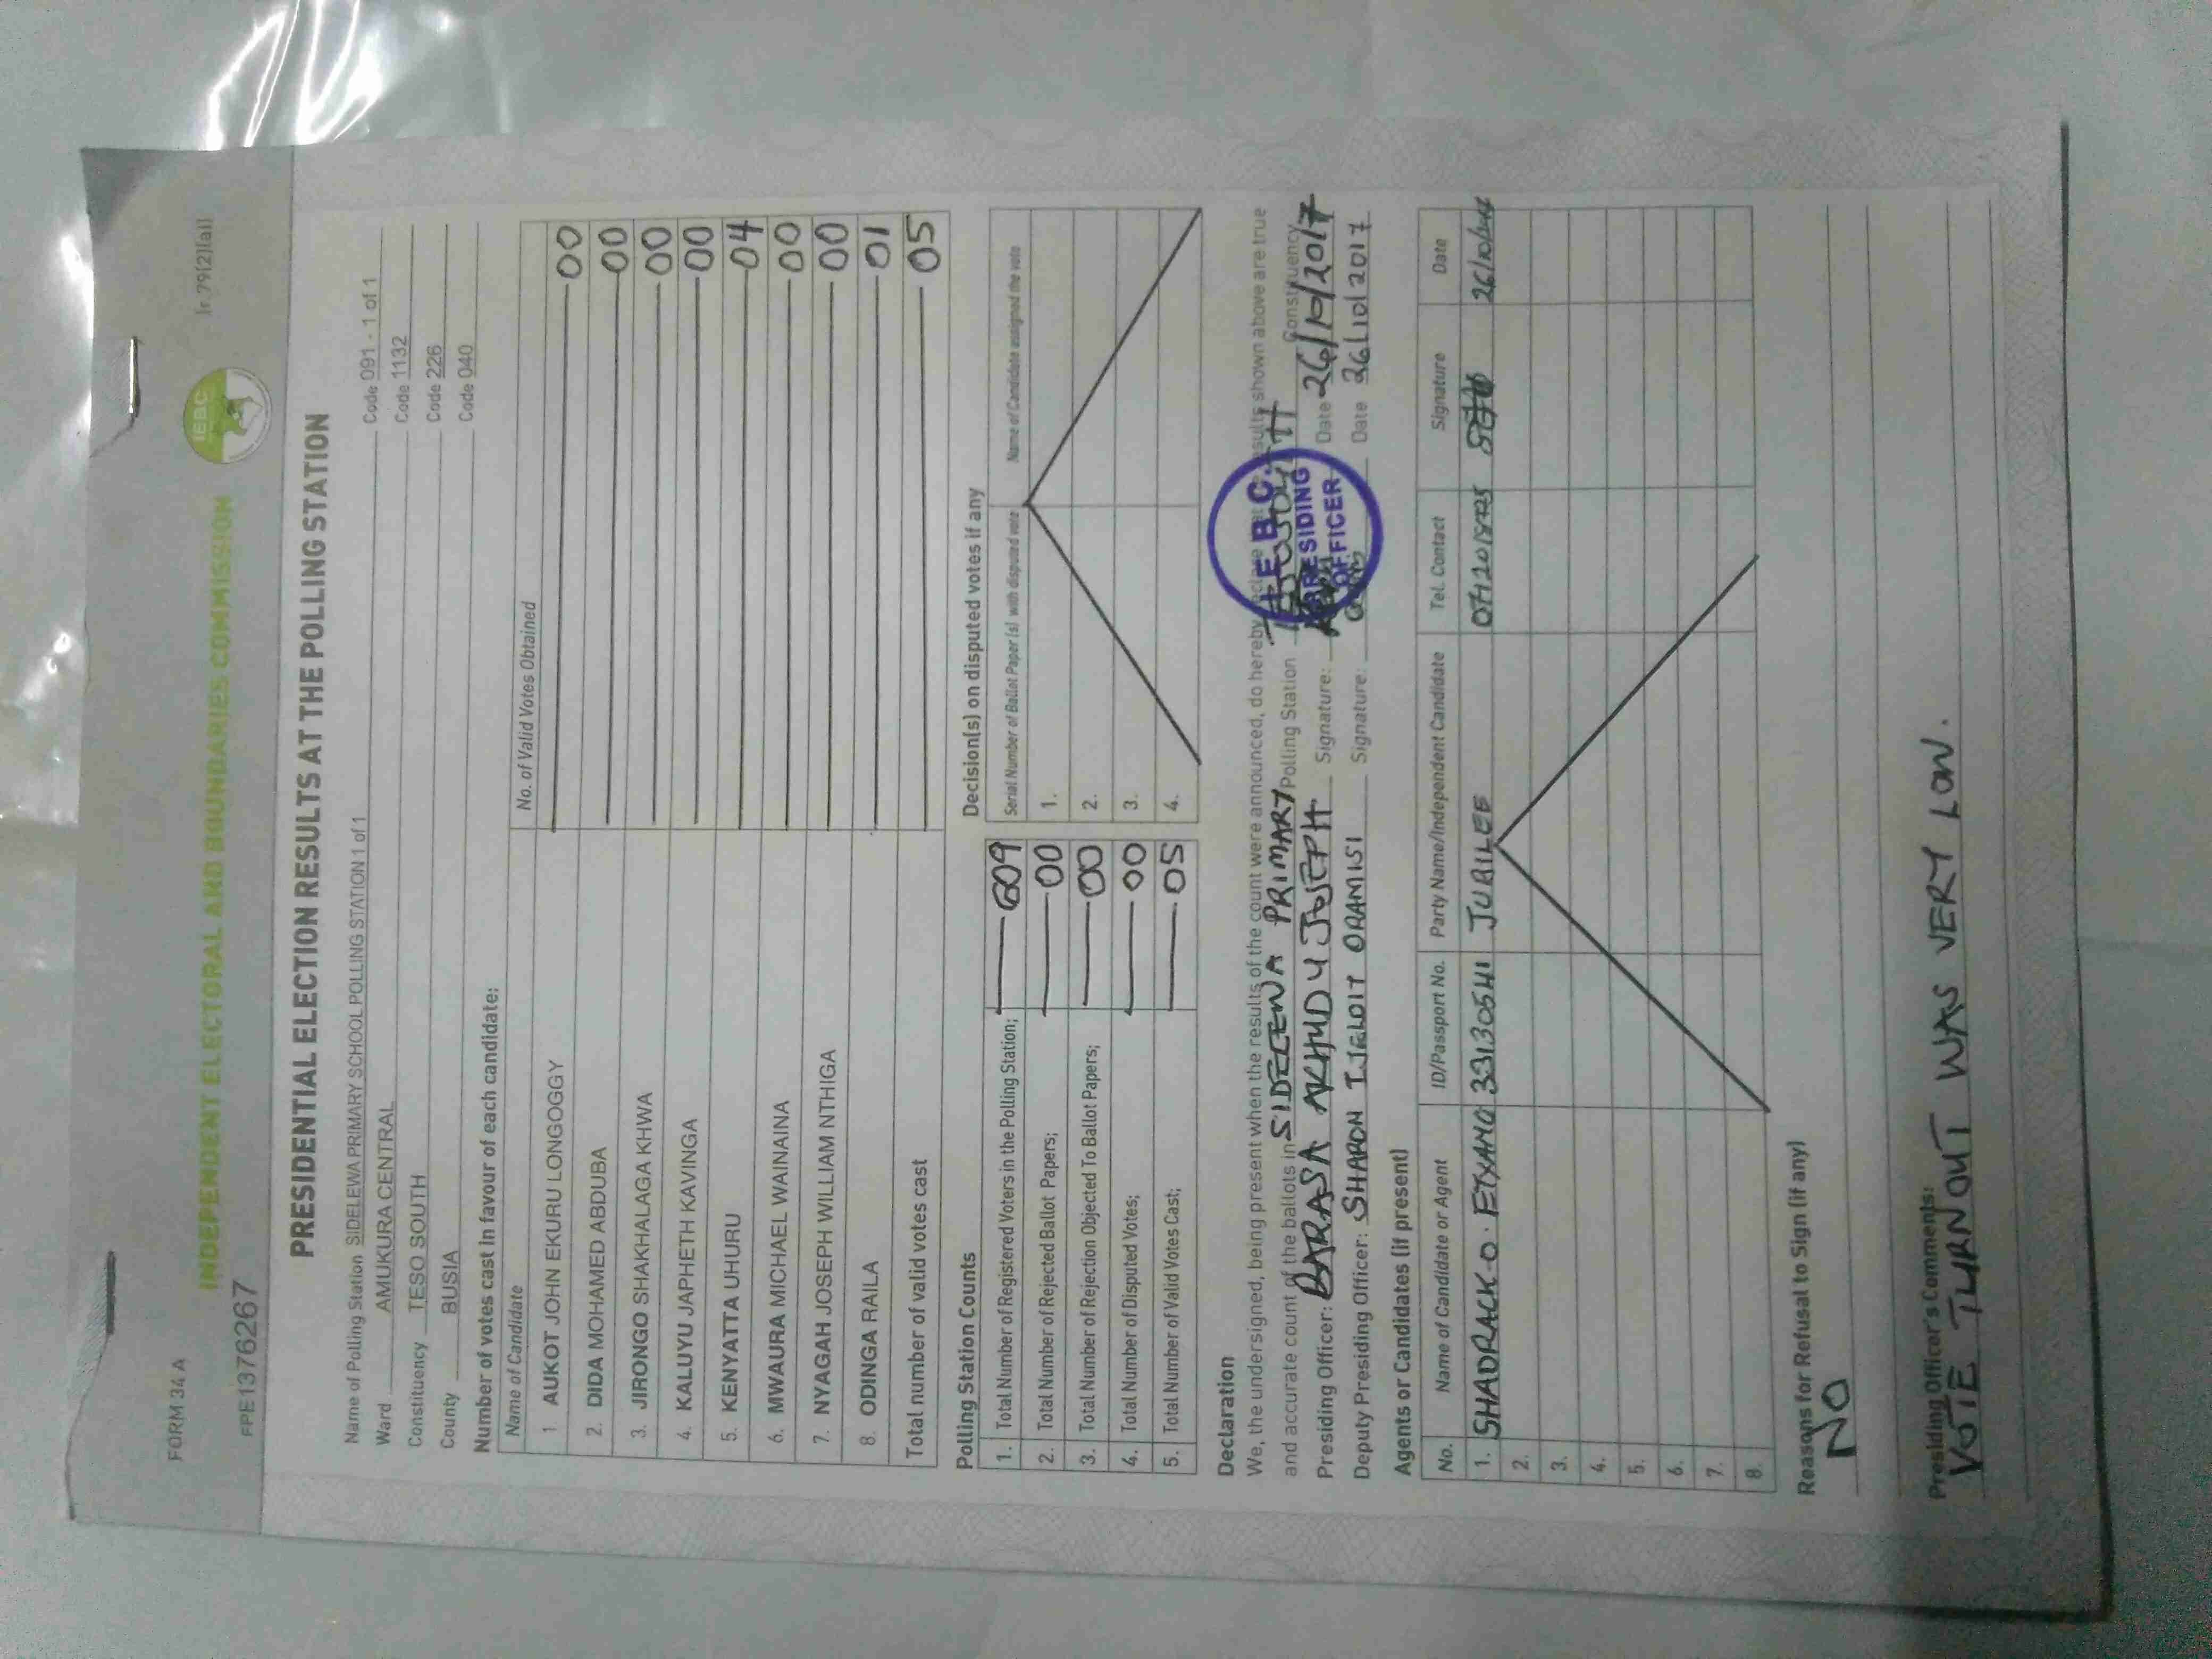 FORM 34 A
INDEPENDENT ELECTORAL AND BOUNDARIES COMMISSION
IEBC
(r.79(2)(a))
FPE1376267
PRESIDENTIAL ELECTION RESULTS AT THE POLLING STATION
Name of Polling Station SIDELEWA PRIMARY SCHOOL POLLING STATION 1 of 1 Code 091 - 1 of 1
Ward AMUKURA CENTRAL Code 1132
Constituency TESO SOUTH Code 226
County BUSIA Code 040
Number of votes cast in favour of each candidate:
Name of Candidate No. of Valid Votes Obtained
1 AUKOT JOHN EKURU LONGOGGY 00
2. DIDA MOHAMED ABDUBA 00
3. JIRONGO SHAKHALAGA KHWA 00
4. KALUYU JAPHETH KAVINGA 00
5. KENYATTA UHURU 04
6. MWAURA MICHAEL WAINAINA 00
7. NYAGAH JOSEPH WILLIAM NTHIGA 00
8. ODINGA RAILA 01
Total number of valid votes cast 05
Polling Station Counts
1. Total Number of Registered Voters in the Polling Station; 609
2. Total Number of Rejected Ballot Papers; 00
3. Total Number of Rejection Objected To Ballot Papers; 00
4. Total Number of Disputed Votes; 00
5. Total Number of Valid Votes Cast; 05
Decision(s) on disputed votes if any
Serial Number of Ballot Paper (s) with disputed vote Name of Candidate assigned the vote
1.
2.
3.
4.
Declaration
We, the undersigned, being present when the results of the count were announced, do hereby results shown above are true
and accurate count of the ballots in SIDELEWA PRIMARY Polling Station Constituency
Presiding Officer: BARASA AKHUDU JOSEPH Signature: Date 26/10/2017
Deputy Presiding Officer: SHARON IJELOIT ORAMISI Signature: Date 26/10/2017
I.E.B.C.
PRESIDING
OFFICER
Agents or Candidates (if present)
No. Name of Candidate or Agent ID/Passport No. Party Name/Independent Candidate Tel. Contact Signature Date
1. SHADRACK O. 33130541 JUBILEE
2.
3.
4.
5.
6.
7.
8.
Reasons for Refusal to Sign (if any)
NO
Presiding Officer's Comments:
VOTE TURNOUT WAS VERY LOW.